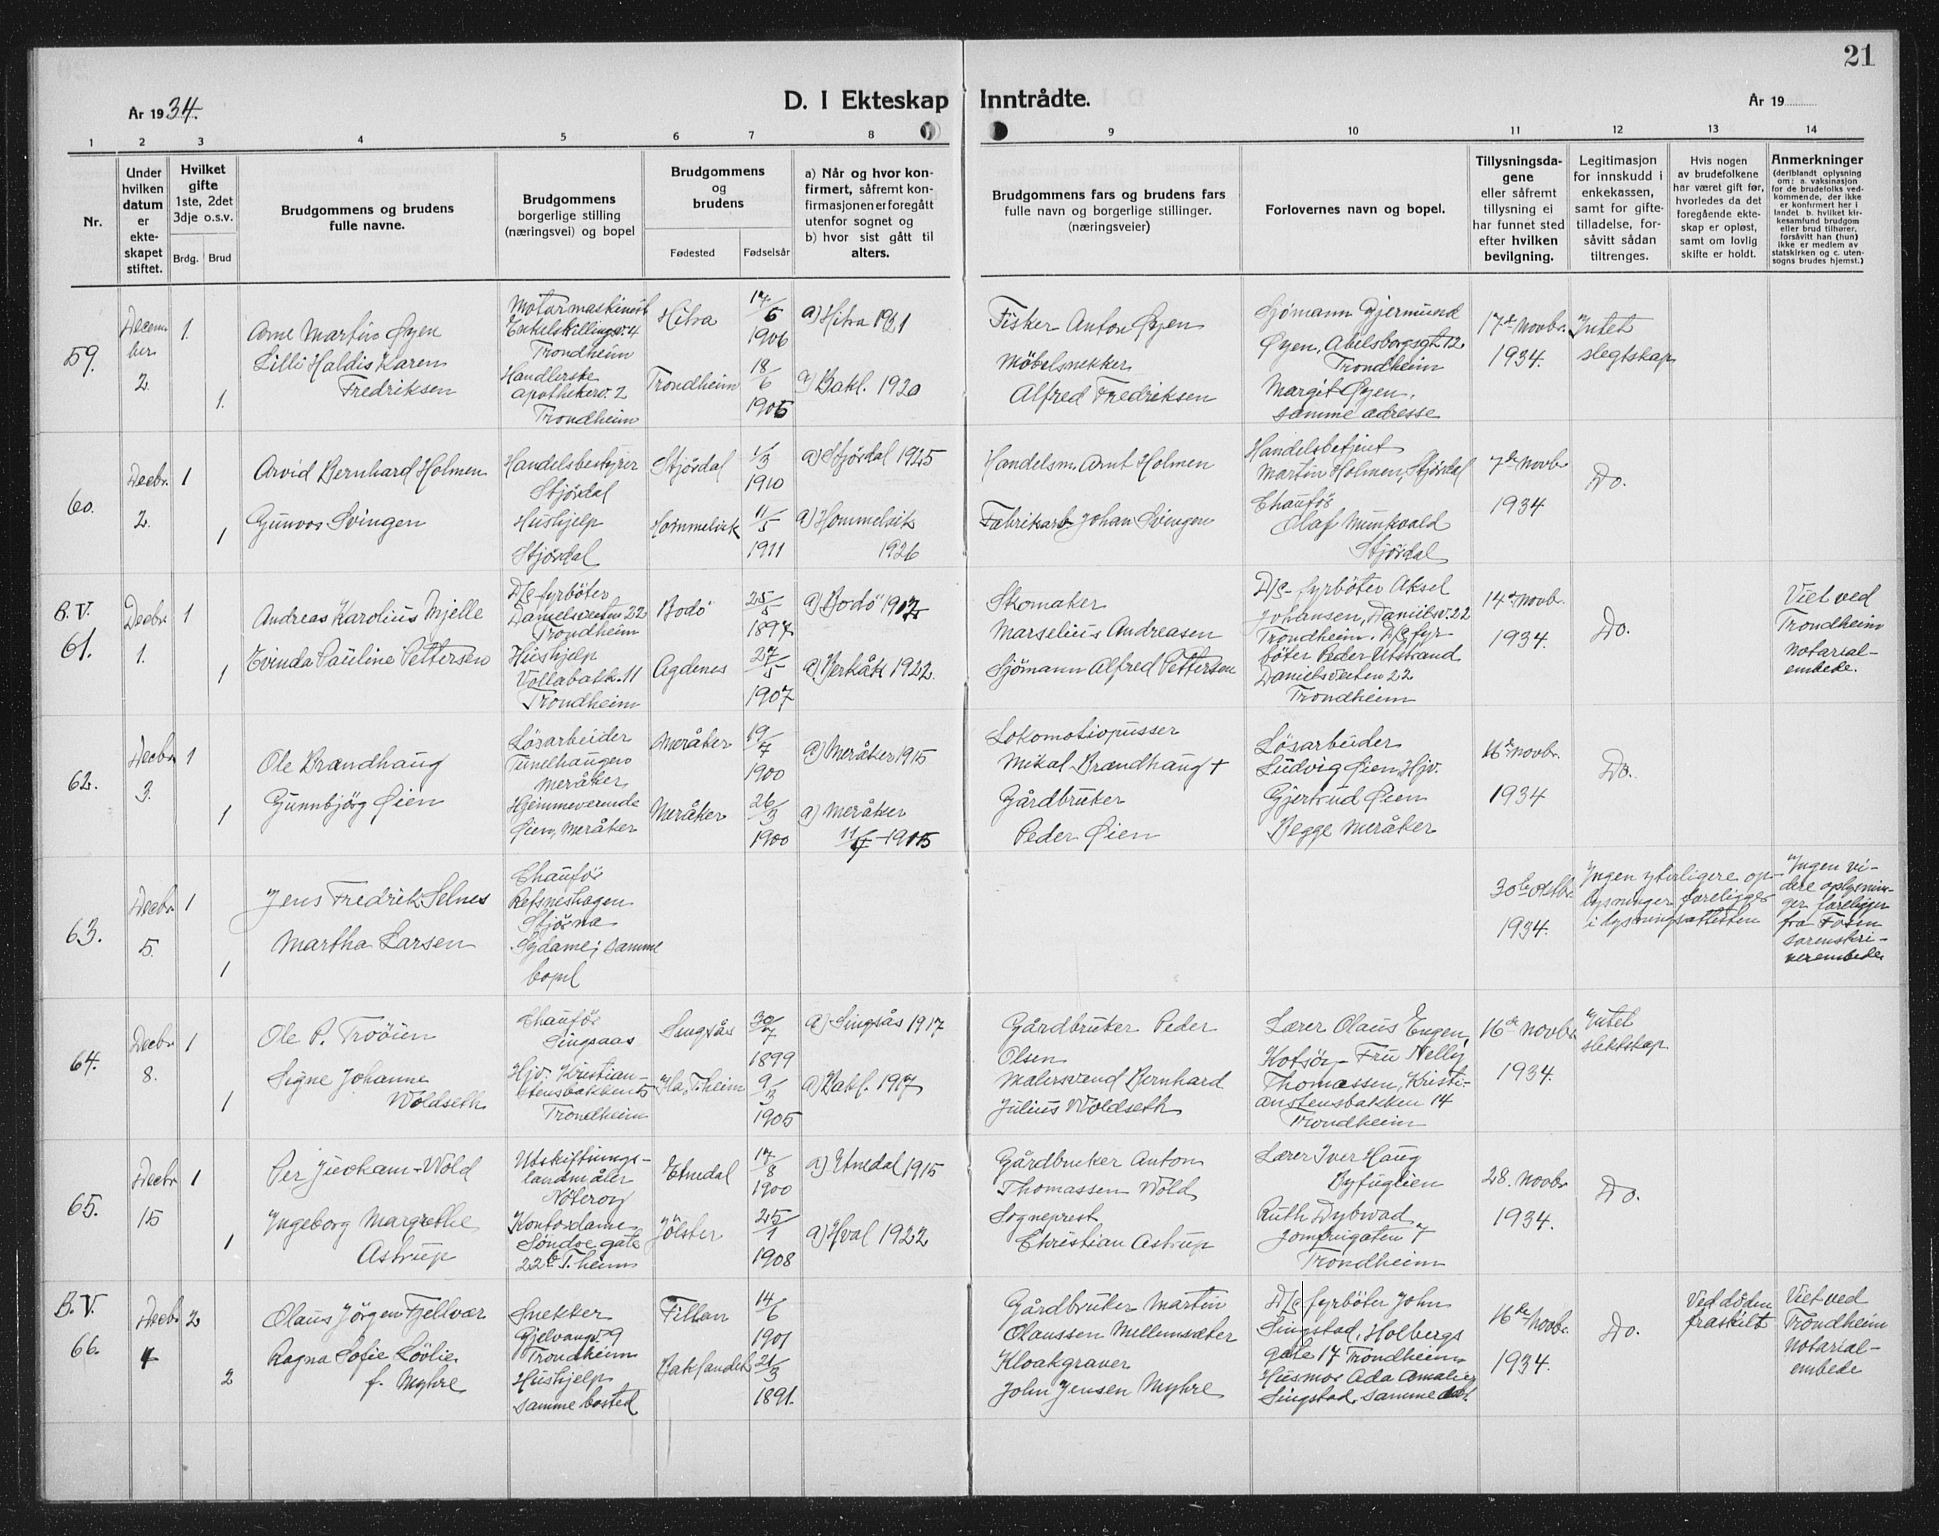 21
År 1934.
D. I Ekteskap Inntrådte.
År 19
1 2 3 4 5 6 7 8 9 10 11 12 13 14
Nr.
Under hvilken datum er ekteskapet stiftet.
Hvilket gifte 1ste, 2det 3dje o.s.v.
Brdg. Brud
Brudgommens og brudens fulle navne.
Brudgommens borgerlige stilling (næringsvei) og bopel
Brudgommens og brudens
Fødested Fødselsår
a) Når og hvor konfirmert, såfremt konfirmasjonen er foregått utenfor sognet og b) hvor sist gått til alters.
Brudgommens fars og brudens fars fulle navn og borgerlige stillinger. (næringsveier)
Forlovernes navn og bopel.
Tillysningsdagene eller såfremt tillysning ei har funnet sted efter hvilken bevilgning.
Legitimasjon for innskudd i enkekassen, samt for giftetilladelse, forsåvitt sådan tiltrenges.
Hvis nogen av brudefolkene har været gift før, hvorledes da det foregående ekteskap er opløst, samt om lovlig skifte er holdt.
Anmerkninger (deriblandt oplysning om: a. vaksinasjon for de brudefolks vedkommende, der ikke er konfirmert her i landet b. hvilket kirkesamfund brudgom eller brud tilhører, forsåvitt han (hun) ikke er medlem av statskirken og c. utensogns brudes hjemst.)
59.
Decem
ber
2.
1.
1.
Arne Martin Øyen
Lilli Haldis Karen
Fredriksen
Motormaskinist
Enkelskillingsv. 4
Trondheim
Handlerske
Apothekerv. 2
Trondheim
Hitra
Trondheim
17/6
1906
18/6
1905
a) Hitra 1921
a) Bakl. 1920
Fisker Anton Øyen
Møbelsnekker
Alfred Fredriksen
Sjømann Gjermund
Øyen, Abelsborgsgt 12
Trondheim
Margit Øyen,
samme adresse
17de Novbr.
1934.
Intet
slegtskap
60.
Decbr.
2.
1
1
Arvid Bernhard Holmen
Gunvor Svingen
Handelsbestyrer
Stjørdal
Hushjelp
Stjørdal
Stjørdal
Hommelvik
1/3
1910
11/5
1911
a) Stjørdal 1925
a) Hommelvik
1926
Handelsm. Arnt Holmen
Fabrikarb. Johan Svingen
Handelsbetjent
Martin Holmen, Stjørdal
Chaufør
Olaf Munkvald
Stjørdal
7de Novbr
1934
Do.
B.V.
61.
Decbr.
1.
1
1
Andreas Karolius Mjelle
Evinda Pauline Pettersen
D/s fyrbøter
Danielsveiten 22
Trondheim
Hushjelp
Vollabakk. 11
Trondheim
Bodø
Agdenes
25/5
1897
27/5
1907
a) Bodø 1912
a) Berkåk 1922.
Skomaker
Marselius Andreasen
Sjømann Alfred Pettersen
D/s fyrbøter Aksel
Johansen, Danielsv. 22
Trondheim. D/s fyr
bøter Peder Utstrand
Danielsveiten 22
Trondheim
14de Novbr.
1934.
Do.
Viet ved
Trondheim
Notarial-
embede.
62.
Decbr
3.
1
1
Ole Brandhaug
Gunnbjörg Øien
Løsarbeider
Tunelhaugen
Meråker
Hjemmeverende
Øien, Meråker
Meråker
Meråker
19/7
1900
26/3
1900
a) Meråker 1915
a) Meråker
1915
Lokomotivpusser
Mikal Brandhaug +
Gårdbruker
Peder Øien
Løsarbeider
Ludvig Øien, Hjv.
Gjertrud Øien
Begge Meråker
16de Novbr.
1934
Do.
63.
Decbr
5.
1
1
Jens Fredrik Selnes
Martha Larsen
Chaufør
Refsneshagen
Stjørna
Sydame; samme
bopel
30te Oktbr.
1934.
Ingen yterligere op-
lysninger foreligger
i lysningsattesten
Ingen vi-
dere oplysnin-
ger foreligger
fra Fosen
sorenskri-
verembede
64.
Decbr
8.
1
1
Ole P. Trøøien
Signe Johanne
Woldseth
Chaufør
Singsaas
Hjv. Kristian-
stensbakken 5
Trondheim
Singsås
Ila, T.heim
30/7
1899
9/3
1905
a) Singsås 1917
a) Bakl. 1917
Gårdbruker Peder
Olsen
Malersvend Bernhard
Julius Woldseth
Lærer Olaus Engen,
Kotsøy - Fru Nelly
Thomassen, Kristi-
anstensbakken 14
Trondheim
16de Novbr.
1934.
Intet
slektskap
65.
Decbr
15
1
1
Per Juvkam-Wold
Ingeborg Margrethe
Astrup
Utskiftnings-
landmåler
Nøterøy
Kontordame
Søndre gate
22b T.heim
Etnedal
Jølster
17/8
1900
25/1
1908
a) Etnedal 1915
a) Hval 1922
Gårdbruker Anton
Thomassen Wold
Sogneprest
Christian Astrup
Lærer Iver Haug
Byfuglien
Ruth Dybwad
Jomfrugaten 7
Trondheim
28. Novbr
1934.
Do.
B.V.
66.
Decbr
4
2
2
Olaus Jörgen Fjellvær
Ragna Sofie Løvlie
f. Myhre
Snekker
Gjelvangv. 9
Trondheim
Hushjelp
samme bosted
Fillan
Baklandet
14/6
1901
21/3
1891.
Gårdbruker Martin
Olaussen Mellemsæter
Kloakgraver
John Jensen Myhre
D/s fyrbøter John
Singstad, Holbergs
gate 17 Trondheim
Husmor Ada Amalie
Singstad, samme
16de Novbr.
1934.
Do.
Ved døden
fraskilt
Viet ved
Trondheim
Notarial-
embede